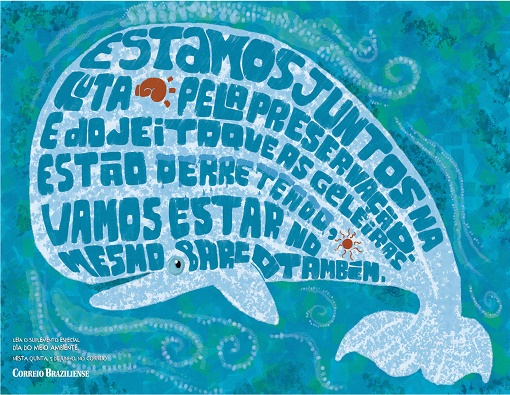 ESTAMOS JUNTOS NA
LUTA PELA PRESERVAÇÃO.
E DO JEITO QUE AS GELEIRAS
ESTÃO DERRETENDO,
VAMOS ESTAR NO
MESMO BARCO TAMBÉM.
LEIA O SUPLEMENTO ESPECIAL
DIA DO MEIO AMBIENTE,
NESTA QUINTA, 5 DE JUNHO, NO CORREIO
CORREIO BRAZILIENSE